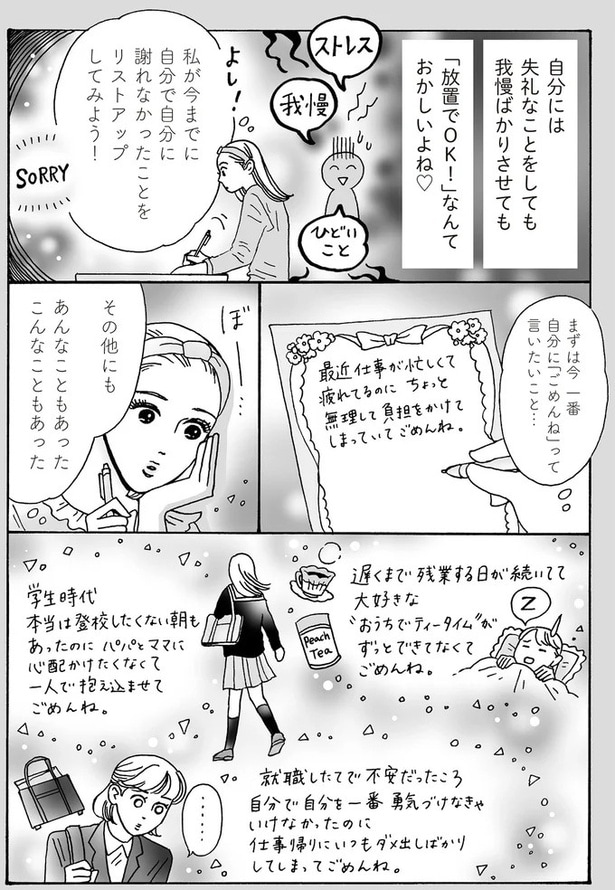 自分には
失礼なことをしても
我慢ばかりさせても
「放置でOK!」なんて
おかしいよね♡
ストレス
我慢
ひどい
こと
よし!
私が今までに
自分で自分に
謝れなかったことを
リストアップ
してみよう!
SORRY
まずは今一番
自分に「ごめんね」って
言いたいこと…
最近仕事が忙しくて
疲れてるのに ちょっと
無理して負担をかけて
しまっていてごめんね。
ぼ……
その他にも
あんなこともあった
こんなこともあった
遅くまで残業する日が続いてて
大好きな
“おうちでティータイム”が
ずっとできてなくて
ごめんね。
Z
Peach
Tea
学生時代
本当は登校したくない朝も
あったのに パパとママに
心配かけたくなくて
一人で抱え込ませて
ごめんね。
就職したてで不安だったころ
自分で自分を一番 勇気づけなきゃ
いけなかったのに
仕事帰りにいつもダメ出しばかり
してしまってごめんね。
・・・・